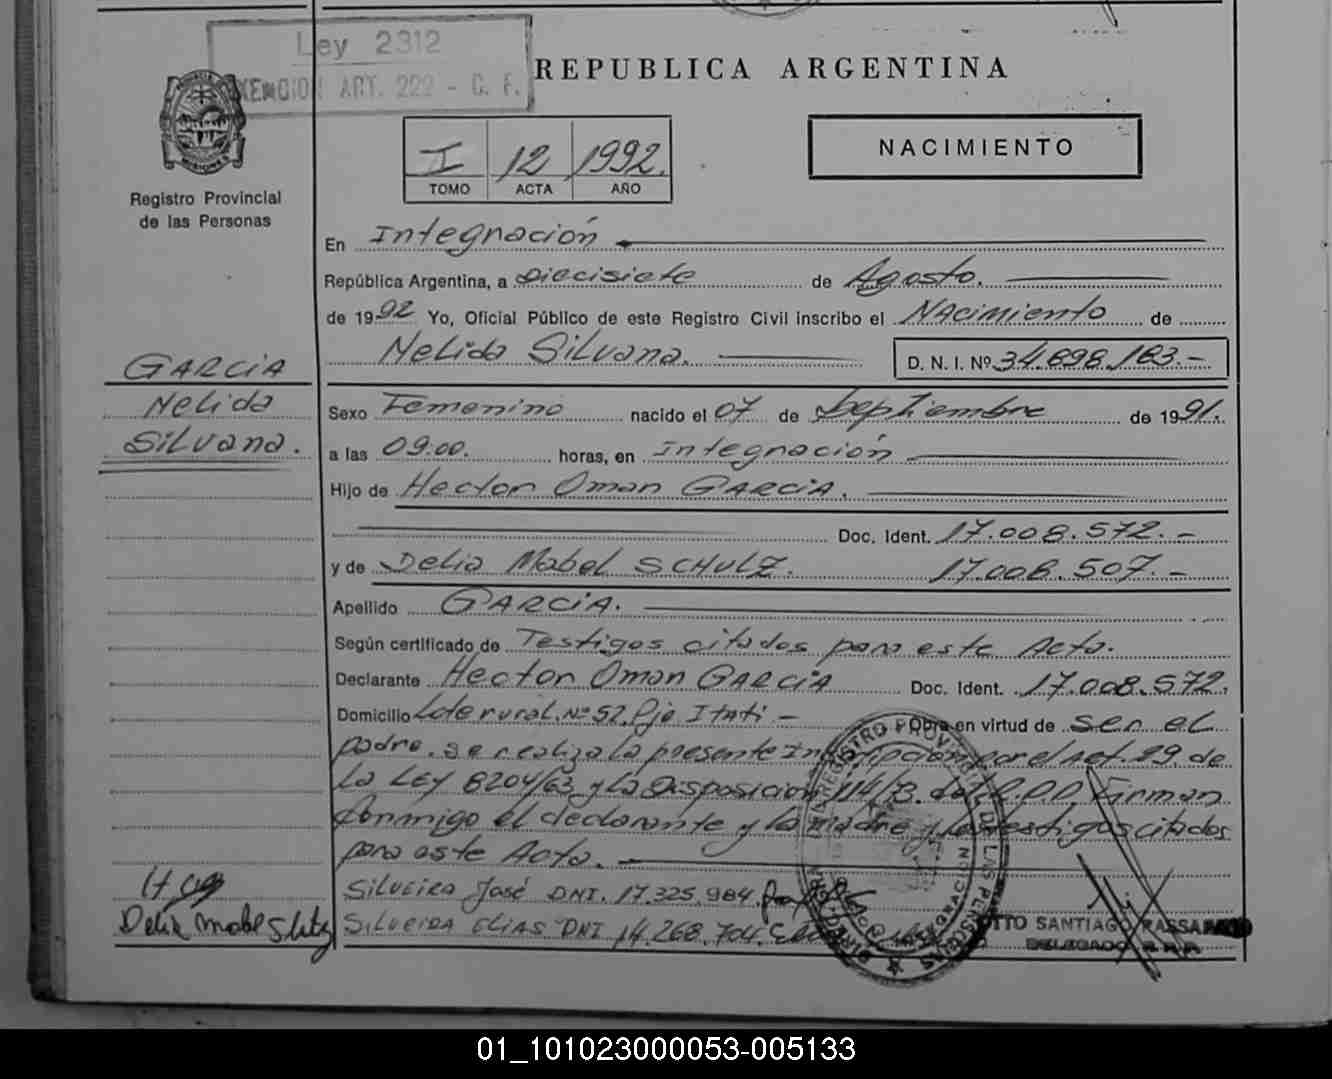 Ley 2312
EXENCION ART. 222 - C. F.
REPUBLICA ARGENTINA
MISIONES
Registro Provincial
de las Personas
I 12 1992.
TOMO ACTA AÑO
NACIMIENTO
En Integración
República Argentina, a Diecisiete de Agosto.
de 1992 Yo, Oficial Público de este Registro Civil inscribo el Nacimiento de
Nelida Silvana. D. N. I. Nº 34.898.183.-
GARCIA
Nelida
Silvana.
Sexo Femenino nacido el 07 de Septiembre de 1991.
a las 09.00. horas, en Integración
Hijo de Hector Omar GARCIA.
Doc. Ident. 17.008.572.-
y de Delia Mabel SCHULZ. 17.008.507.-
Apellido GARCIA.
Según certificado de Testigos citados para este Acta.
Declarante Hector Omar GARCIA Doc. Ident. 17.008.572.
Domicilio Lote rural. Nº 52. Pje Itati - Obra en virtud de ser el
padre. se realiza la presente Inscripción por el Art. 29 de
la LEY 8204/63 y la Disposición 114/73. del R.P.P. Firman
Conmigo el declarante y la madre y los testigos citados
para este Acta.
Silveira José DNI. 17.325.984.
SILVEIRA ELIAS DNI 14.268.704.
Delia Mabel
OTTO SANTIAGO
DELEGADO R.P.P.
01_101023000053-005133